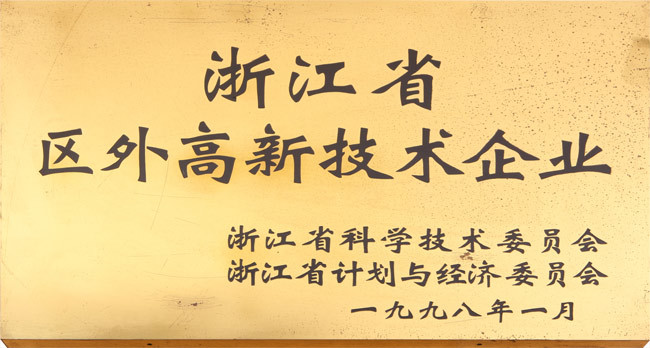 浙江省
区外高新技术企业
浙江省科学技术委员会
浙江省计划与经济委员会
一九九八年一月